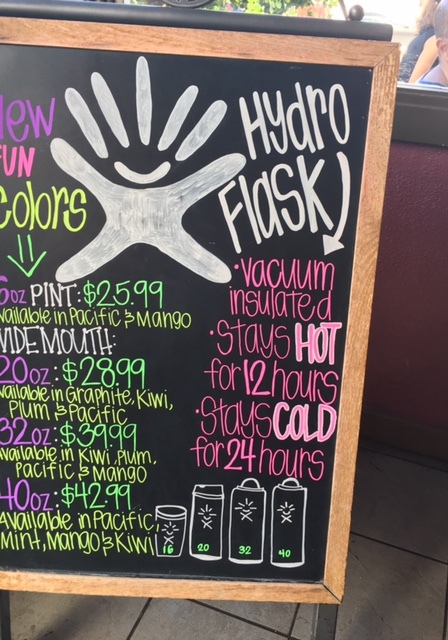 Hydro
Flask
New
FUN
Colors
16oz PINT: $25.99
Available in Pacific & Mango
WIDE MOUTH:
20oz: $28.99
Available in Graphite, Kiwi,
Plum & Pacific
32oz: $39.99
Available in Kiwi, Plum,
Pacific & Mango
40oz: $42.99
Available in Pacific,
Mint, Mango & Kiwi
• vacuum
insulated
• Stays HOT
for 12 hours
• Stays COLD
for 24 hours
16 20 32 40